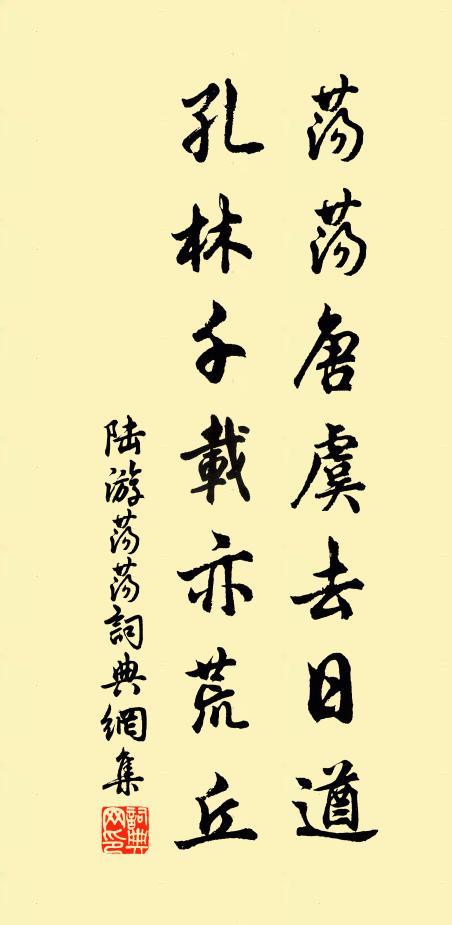 荡荡唐虞去日遒
孔林千載亦荒丘
陆游荡荡詞典網集
詞典網印